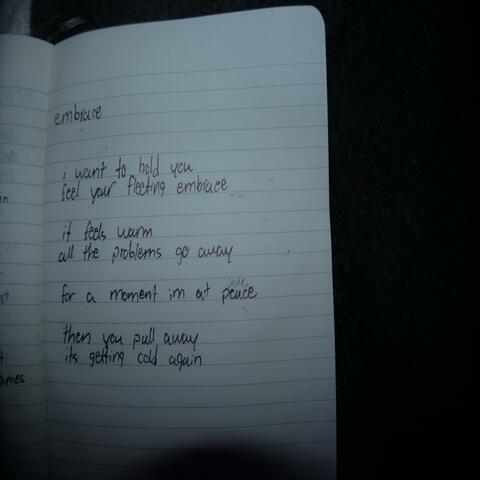 embrace
i want to hold you
feel your fleeting embrace
it feels warm
all the problems go away
for a moment im at peace
then you pull away
its getting cold again